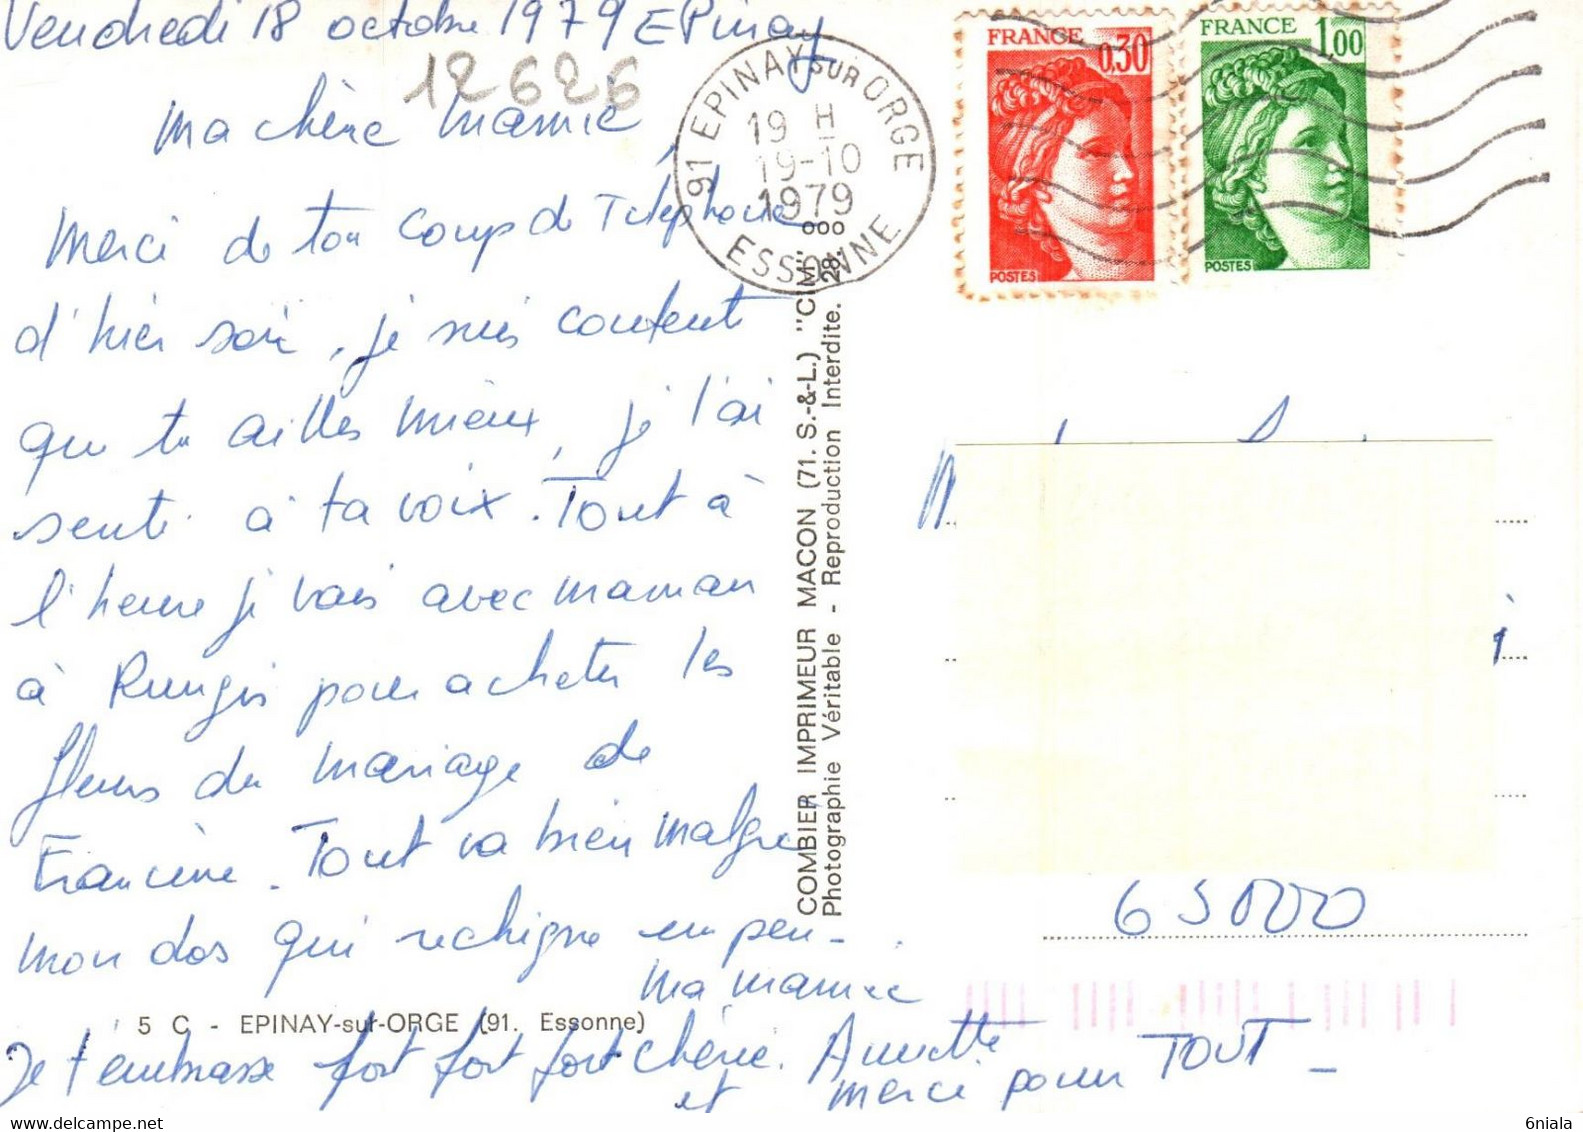 Vendredi 18 octobre 1979 EPinay
12626
Ma chère Mamie,
Merci de ton coup de Téléphone
d'hier soir, je suis contente
que tu ailles mieux, je l'ai
senti à ta voix. Tout à
l'heure je vais avec maman
à Rungis pour acheter les
fleurs du mariage de
Francine. Tout va bien malgré
mon dos qui rechigne un peu -.
Ma mamie
Je t'embrasse fort fort fort chérie. Annette
et merci pour TOUT -
5 C - EPINAY-sur-ORGE (91. Essonne)
COMBIER IMPRIMEUR MACON (71. S.-&-L.) "CIM"
Photographie Véritable - Reproduction Interdite. 28.
91 EPINAY SUR ORGE
19 H
19-10
1979
ESSONNE
FRANCE
0,30
POSTES
FRANCE
1,00
POSTES
65000
6niala